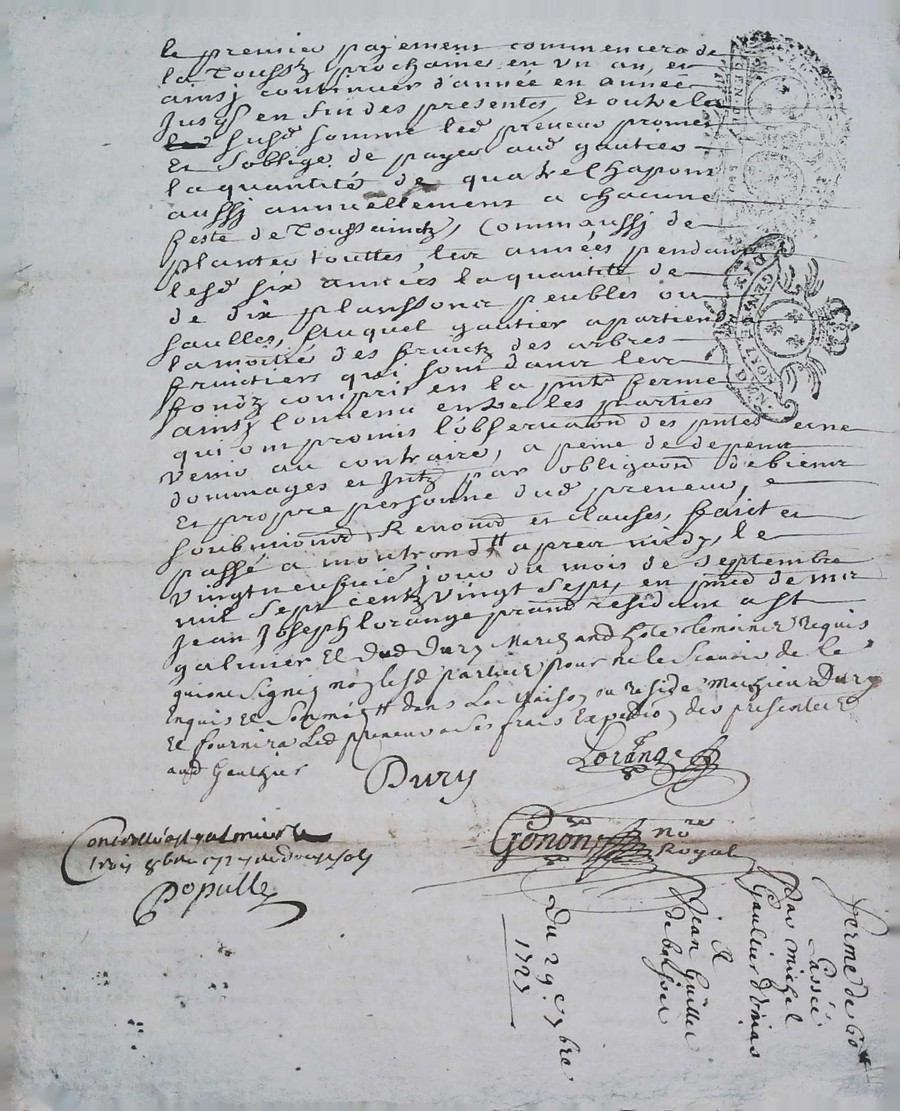 le premier pajement commencera de
la Toussz prochaine en un an, et
ainsj continuer d'année en année
jusqs en fin des presentes, Et outre la
susd somme led preneur promet
Et s'oblige de payer aud gautier
la quantité de quatre chapons
aussj annuellement a chacune
feste de Toussainctz, Commaussj de
planter touttes les années pendant
lesd six années la quantité de
de dix planssons peubles ou
saulles, auquel gautier apartiend
la moitié des fruictz des arbres
fruictiers qui sont dans les
fondz compris en la pnte ferme
ainsj convenu entre les parties
qui ont promis l'observaon des pntes
venir au contraire, a peine de depens
dommages et intz par obligaon de biens
Et propre personne dud preneur,
soubmions Renons et clauses, faict et
passé a montrond apres midy, le
vingtneufvie jour du mois de septembre
mil sept centz vingt sept, en pnce de mre
jean joseph lorange residant a st
galmier Et Dury March and hote temoins Requis
qui ont signé non lesd parties pour ne le scavoir de ce
Enquis Et sommés dans La maison ou reside Mathieu Dury
Et fournira led preneur a ses frais Expedion des presentes
aud Gauthier
Dury
Lorange
Controllé a st galmier le
trois 8bre 1727
Populle
Gonon
nore
Royal
ferme de 60
Passée
par michel
Gaultier
A
Jean Guillet
Du 29e 7bre
1727
GEN
MONT